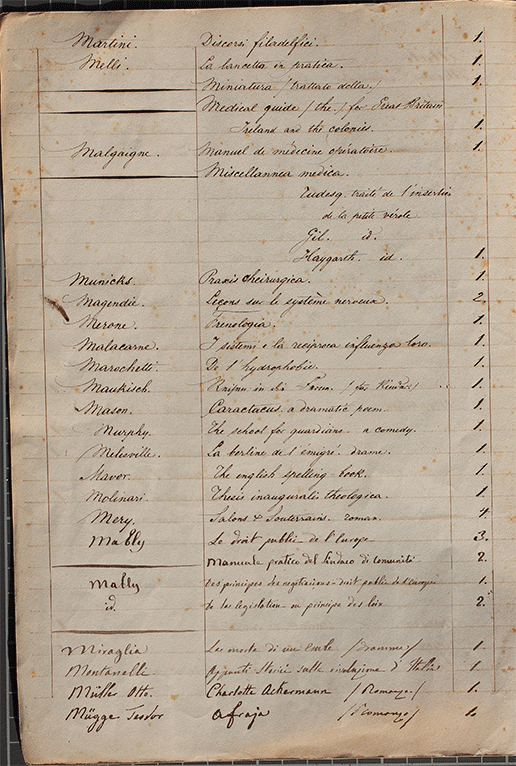 Martini. Discorsi filadelfici. 1.
Melli. La lancetta in pratica. 1.
Miniatura /trattato della/ 1.
Medical guide /the/ for Great Britain
Ireland and the colonies. 1.
Malgaigne. Manuel de médicine opératoire. 1.
Miscellannea medica.
traité de l'insertion
de la petite vérole
Gil. id.
Haygarth. id. 1.
Municks. Praxis cheirurgica. 1.
Magendie. Leçons sur le système nerveux. 2.
Merone. Frenologia. 1.
Malacarne. I sistemi e la reciproca influenza loro. 1.
Marochetti. De l'hydrophobie. 1.
Maukisch. in /für Kinder/ 1.
Mason. Caractacus. a dramatic poem. 1.
Murphy. The school for guardians - a comedy. 1.
Melesville. La berline de l'émigré. drame. 1.
Mavor. The english spelling-book. 1.
Molinari. Thesis inauguralis theologica. 1.
Mery. Salons & Souterrains. roman. 4.
Mably Le droit public de l'Europe 3.
Manuale pratico del Sindaco di comunità 2.
Mably Des principes des negotiations - droit public de l'europe 1.
id. De la législation ou principe des loix 2.
Miraglia La morte di un esule /Dramma/ 1.
Montanelli Appunti storici sulla rivoluzione d'Italia 1.
Müller Otto. Charlotte Ackermann /Romanzo/ 1.
Mügge Teodor Afraja /Romanzo/ 1.